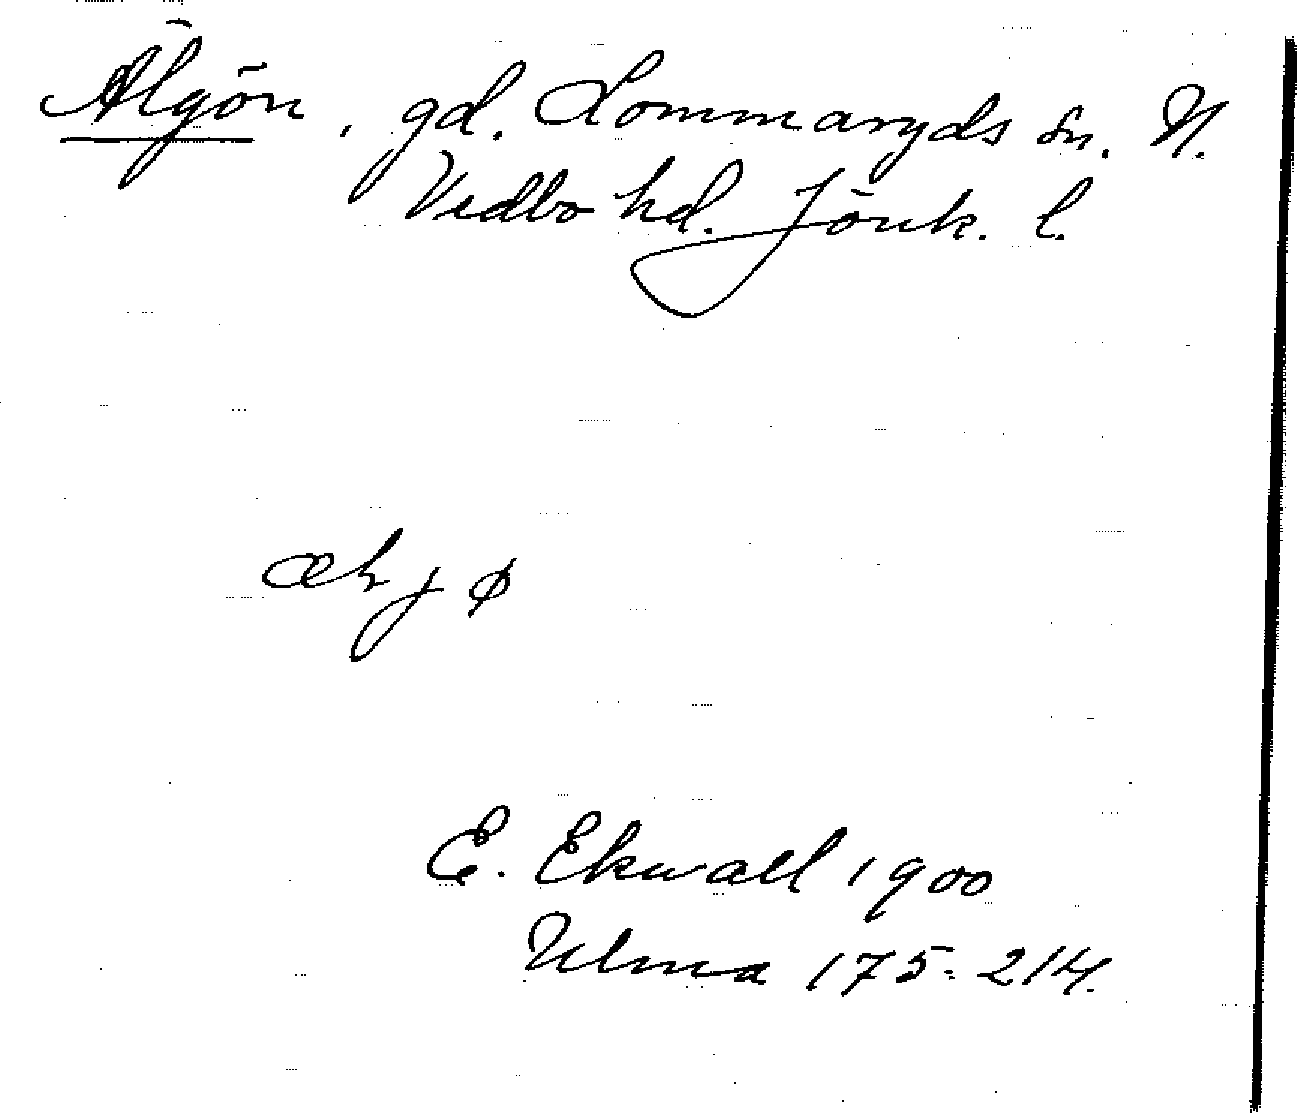 Älgön, gd. Lommaryds sn. N.
Vedbo hd. Jönk. l.
E. Ekwall 1900
Ulma 175:214.